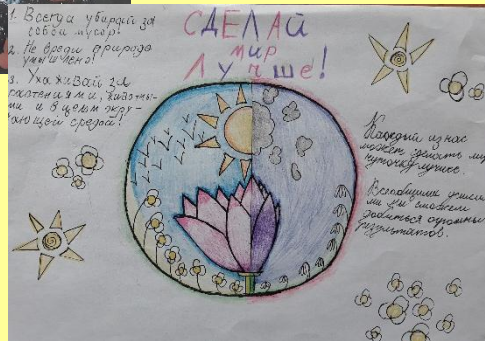 СДЕЛАЙ
мир
Лучше!
1. Всегда убирай за
собой мусор!
2. Не вреди природе
умышлено!
3. Ухаживай за
растениями, животны-
ми и в целом окру-
жающей средой!
Каждый из нас
может сделать мир
чуточку лучше.
Всеобщими усили-
ями мы сможем
добиться огромных
результатов.